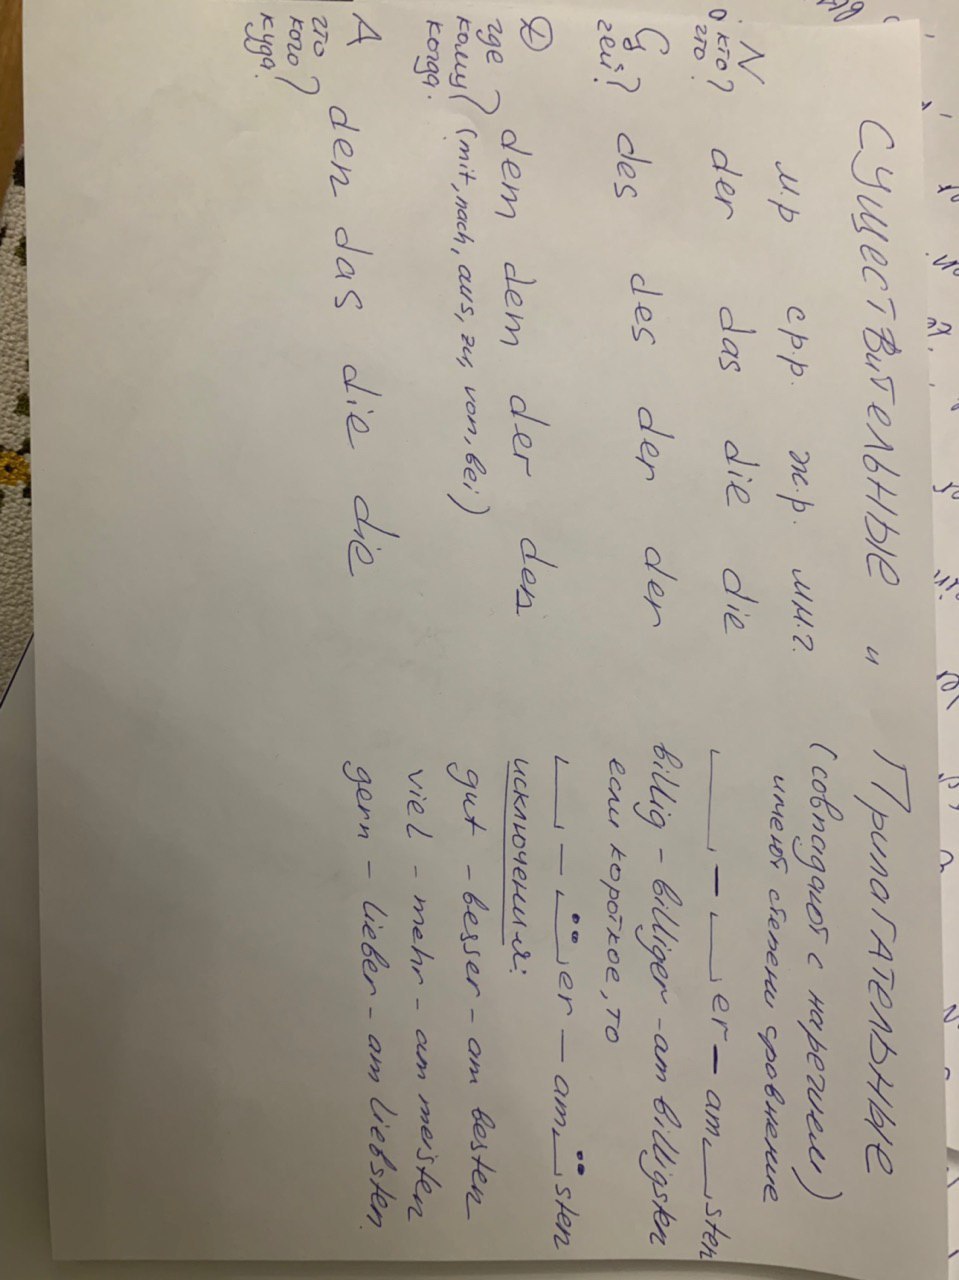 Существительные и Прилагательные
м.р ср.р. ж.р. мн.ч.
N кто? что? der das die die
G чей? des des der der
D где кому? когда. dem dem der den
(mit, nach, aus, zu, von, bei)
A что кого? куда. den das die die
(совпадают с наречием)
имеют степени сравнение
— er — am sten
billig - billiger - am billigsten
если короткое, то
— ̈ er — am ̈ sten
исключения:
gut - besser - am besten
viel - mehr - am meisten
gern - lieber - am liebsten.